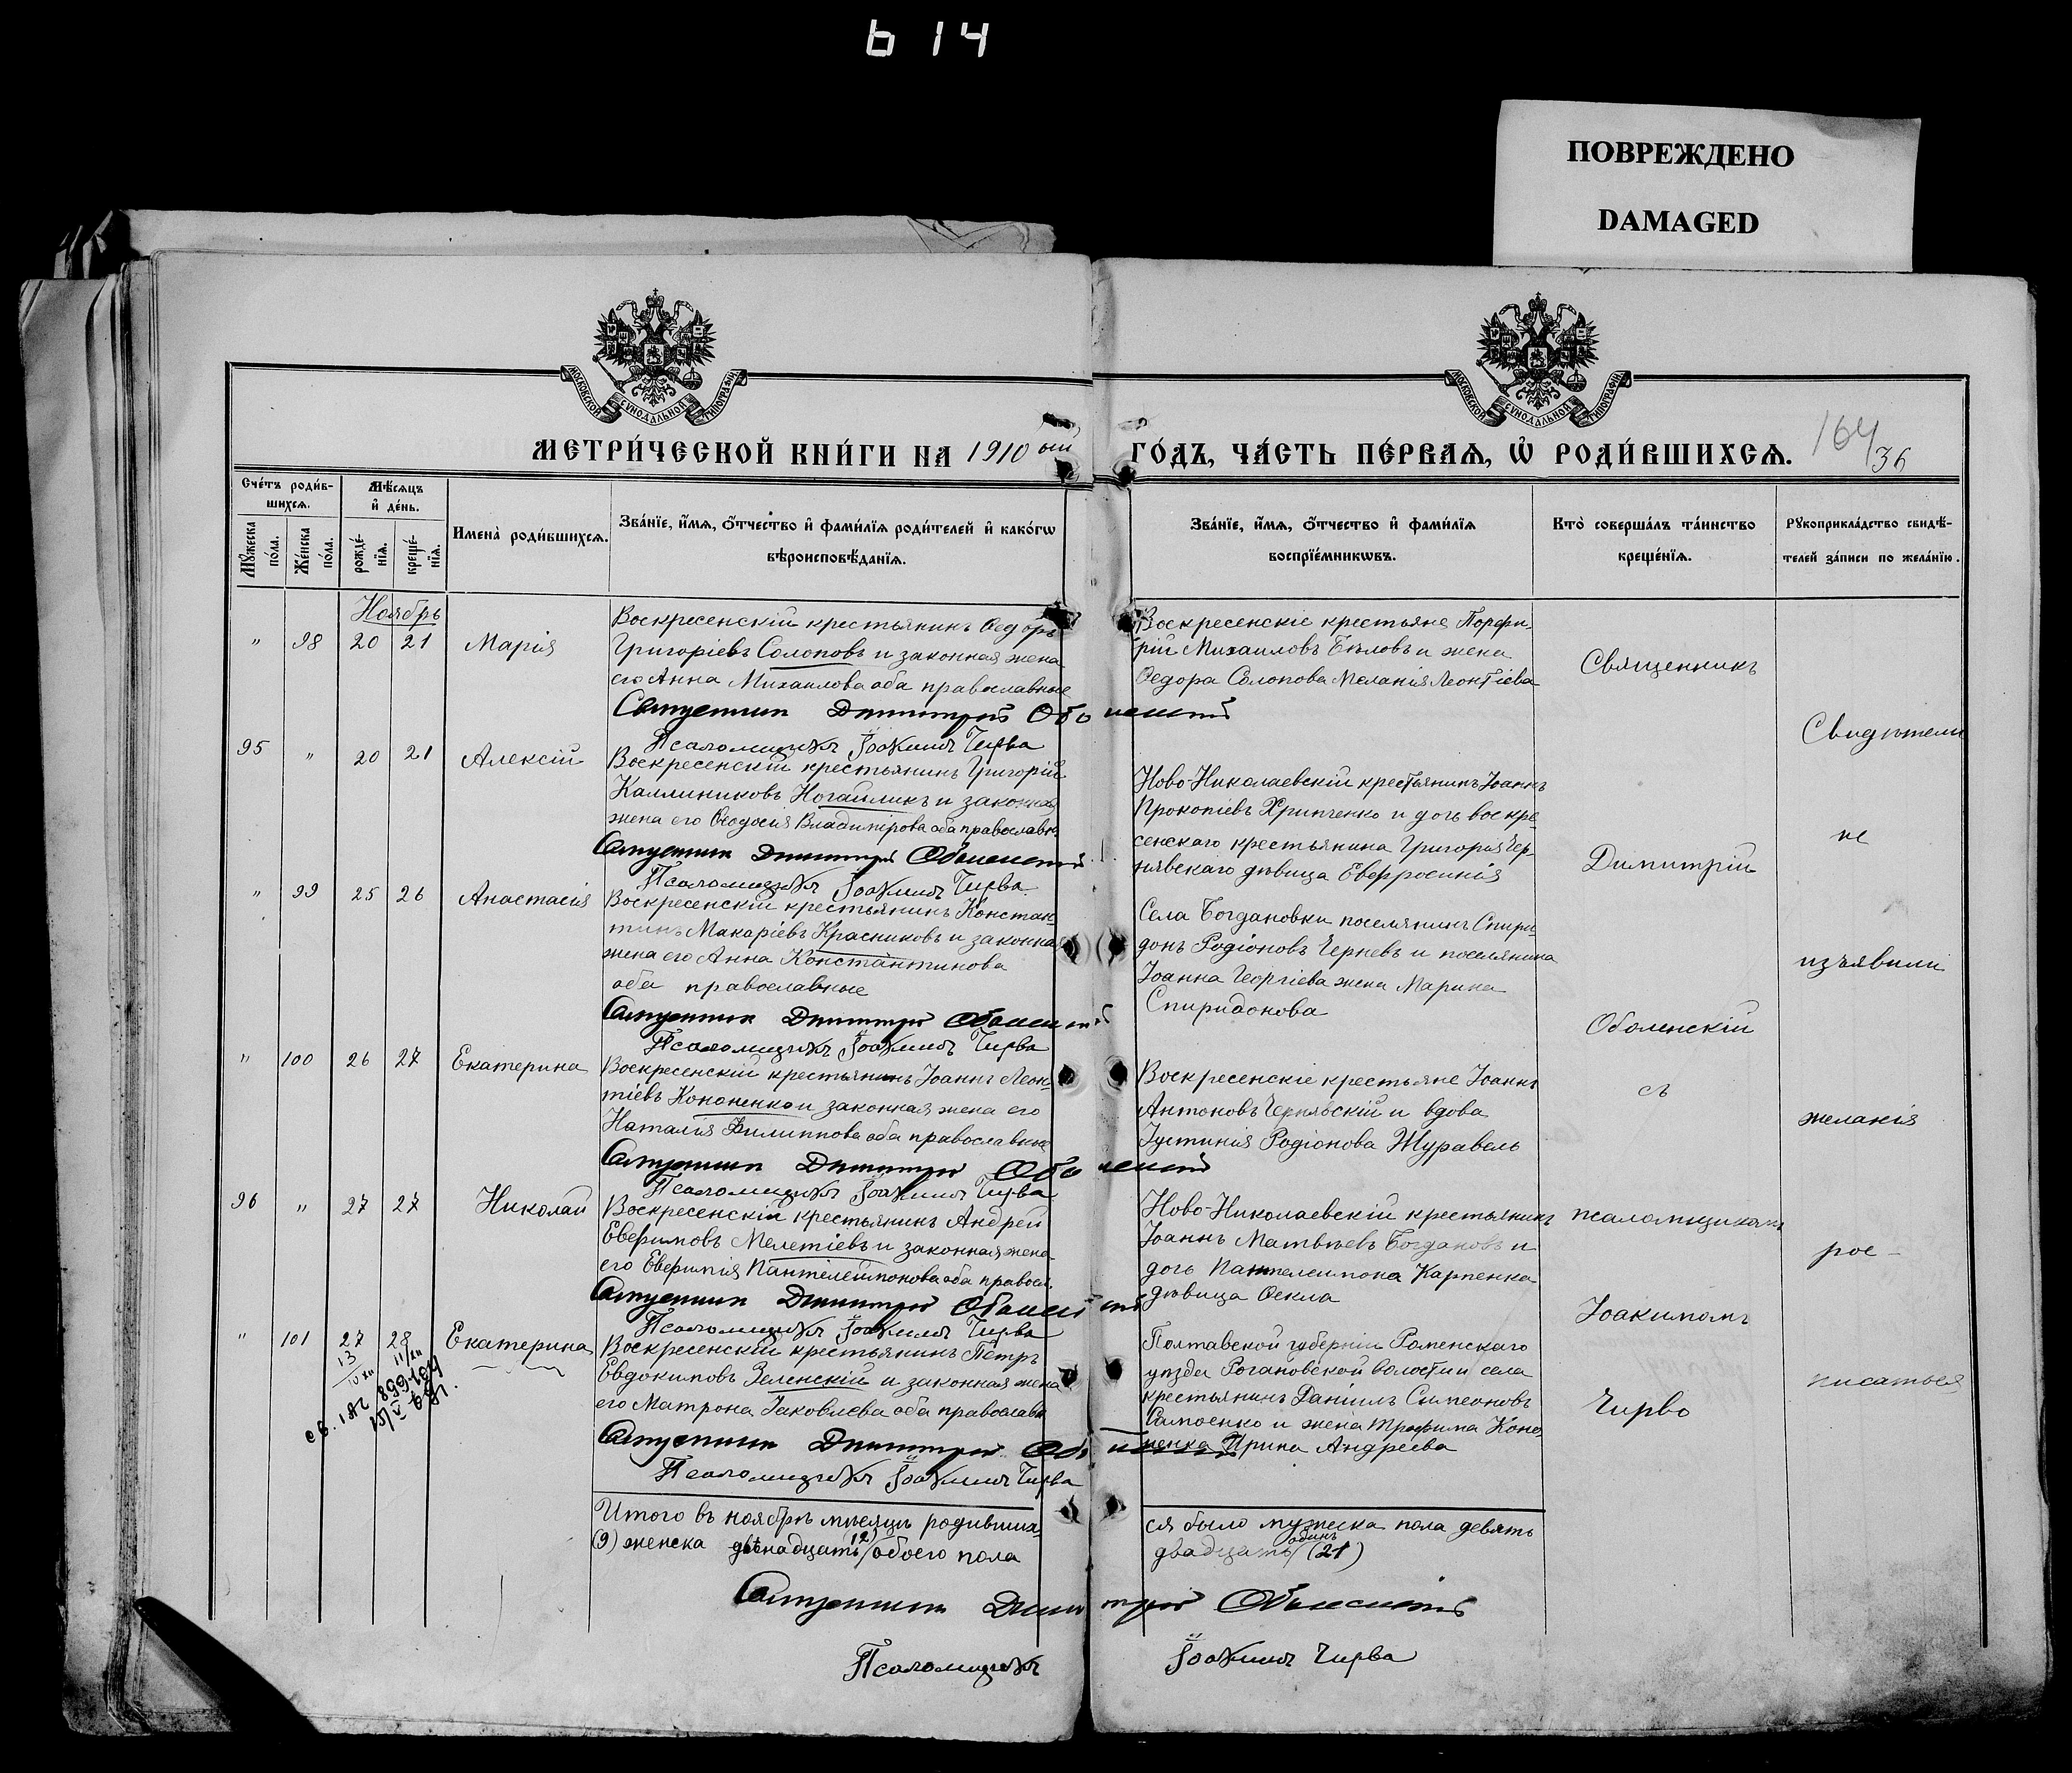 614
ПОВРЕЖДЕНО
DAMAGED
МОСКОВСКОЙ СУНОДАЛЬНОЙ ТИПОГРАФІИ
МОСКОВСКОЙ СУНОДАЛЬНОЙ ТИПОГРАФІИ
МЕТРИ́ЧЕСКОЙ КНИ́ГИ НА 1910 ый
ГО́ДЪ, ЧА́СТЬ ПЕ́РВАѦ, Ѡ РОДИ́ВШИХСѦ.
164
36
Сче́тъ роди́в-
шихсѧ.
Мꙋжеска по́ла.
Же́нска по́ла.
Мѣ́сѧцъ
и҆ де́нь.
рожде́-
нїѧ.
креще́-
нїѧ.
Имена̀ роди́вшихсѧ.
Зва́нїе, и҆́мѧ, ѻ҆́тчество и҆ фами́лїѧ роди́телей и҆ како́гѡ
вѣроисповѣ́данїѧ.
Зва́нїе, и҆́мѧ, ѻ҆́тчество и҆ фами́лїѧ
воспрїе́мникѡвъ.
Кто̀ соверша́лъ та́инство
креще́нїѧ.
Рꙋкоприкла́дство свидѣ́-
телей за́писи по жела́нїю.
Ноябрь
" 98 20 21 Марія
Воскресенскій крестьянинъ Ѳедоръ
Григоріевъ Солоповъ и законная жена
его Анна Михаилова оба православные
Священникъ Димитрій Оболенскій
Псаломщикъ Іоакимъ Чирва
Воскресенскіе крестьяне Порфи-
рій Михаиловъ Бѣловъ и жена
Ѳедора Солопова Меланія Леонтіева
95 " 20 21 Алексій
Воскресенскій крестьянинъ Григорій
Каллиниковъ Ногайликъ и законная
жена его Ѳеодосія Владимірова оба православн.
Священникъ Димитрій Оболенскій
Псаломщикъ Іоакимъ Чирва
Ново-Николаевскій крестьянинъ Іоаннъ
Прокопіевъ Хрипченко и дочь воскре-
сенскаго крестьянина Григорія Чер-
нявскаго дѣвица Евфросинія
" 99 25 26 Анастасія
Воскресенскій крестьянинъ Констан-
тинъ Макаріевъ Красниковъ и законная
жена его Анна Константинова
оба православные
Священникъ Димитрій Оболенскій
Псаломщикъ Іоакимъ Чирва
Села Богдановки поселянинъ Спири-
донъ Родіоновъ Черневъ и поселянина
Іоанна Георгіева жена Марина
Спиридонова
" 100 26 27 Екатерина
Воскресенскій крестьянинъ Іоаннъ Леон-
тіевъ Кононенко и законная жена его
Наталія Филиппова оба православные
Священникъ Димитрій Оболенскій
Псаломщикъ Іоакимъ Чирва
Воскресенскіе крестьяне Іоаннъ
Антоновъ Чернявскій и вдова
Іустинія Родіонова Журавель
96 " 27 27 Николай
Воскресенскій крестьянинъ Андрей
Евѳимовъ Мелетіевъ и законная жена
его Евѳимія Пантелеймонова оба правосл.
Священникъ Димитрій Оболенскій
Псаломщикъ Іоакимъ Чирва
Ново-Николаевскій крестьянинъ
Іоаннъ Матвѣевъ Богдановъ и
дочь Пантелеимона Карпенка
дѣвица Ѳекла
" 101 27 28 Екатерина
13
Воскресенскій крестьянинъ Петръ
Евдокимовъ Зеленскій и законная жена
его Матрона Іаковлева оба православн
Священникъ Димитрій Оболенскій
Псаломщикъ Іоакимъ Чирва
Полтавской губерніи Роменскаго
уѣзда Рогановской волости и села
крестьянинъ Даніилъ Симеоновъ
Самоенко и жена Трофима Коно-
ненка Ирина Андреева
Священникъ
Димитрій
Оболенскій
съ
псаломщикомъ
Іоакимомъ
Чирво
Свидѣтели
не
изъявили
желанія
рос-
писаться
Итого въ ноябрѣ мѣсяцѣ родивших
ся было мужеска пола девять
(9) женска двѣнадцать (12) обоего пола
двадцать одинъ (21)
Священникъ Димитрій Оболенскій
Псаломщикъ Іоакимъ Чирва